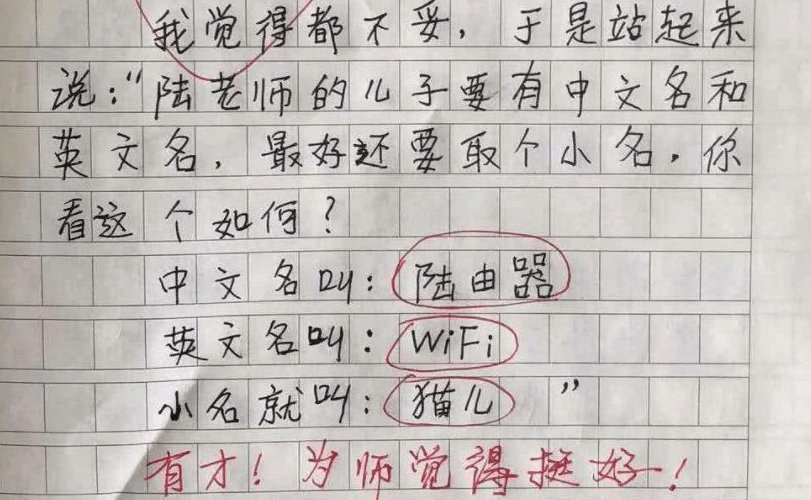 我觉得都不妥，于是站起来
说：“陆老师的儿子要有中文名和
英文名，最好还要取个小名，你
看这个如何？
中文名叫：陆由器
英文名叫：WiFi
小名就叫：猫儿”
有才！为师觉得挺好！